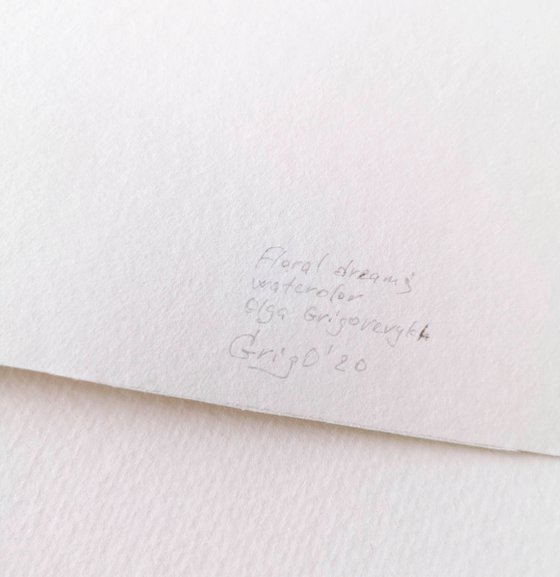 Floral dreams
watercolor
Olga Grigorevykh
GrigO'20